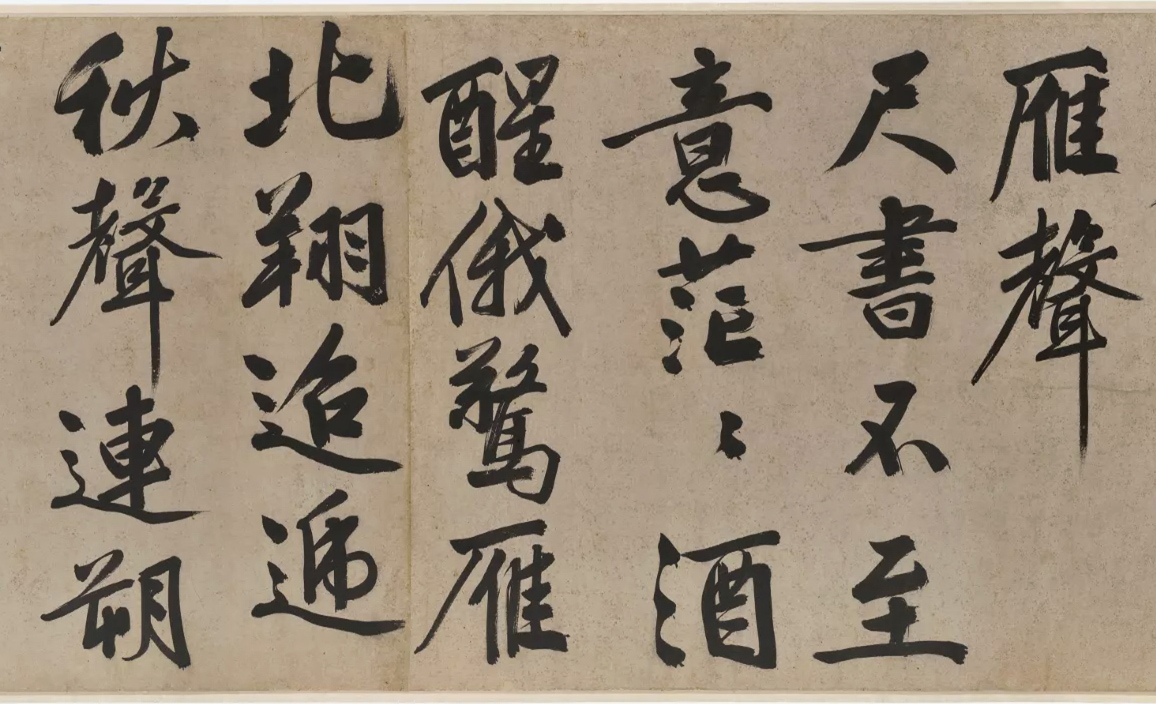 雁聲
尺書不至
意茫〻酒
醒俄驚雁
北翔迢遞
秋聲連朔